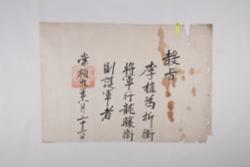 教旨
李植為折衝
將軍行龍驤衛
副護軍者
崇禎九年月二十二日